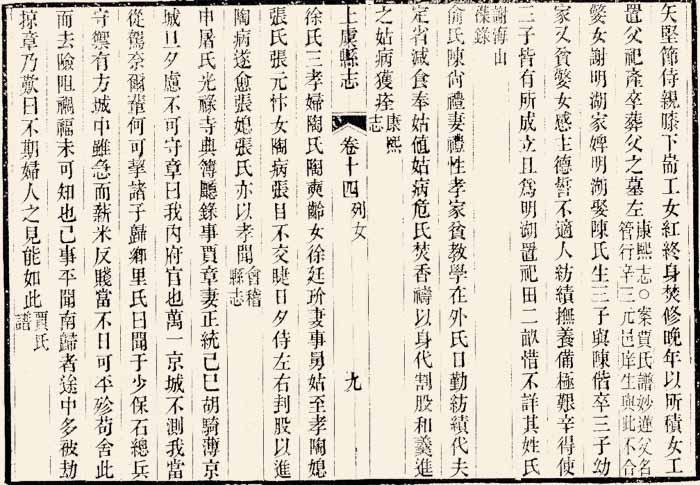 矢堅節侍親膝下耑工女紅終身焚修晚年以所積女工
置父祀產卒葬父之墓左
康熙志○案賈氏譜妙蓮父名
管行辛三元邑庠生與此不合
婺女謝明湖家婢明湖娶陳氏生三子與陳偕卒三子幼
家又貧婺女感主德誓不適人紡績撫養備極艱辛得使
三子皆有所成立且爲明湖置祀田二畝惜不詳其姓氏
謝海山
謀錄
俞氏陳尚禮妻禮性孝家貧教學在外氏日勤紡績代夫
定省減食奉姑值姑病危氏焚香禱以身代割股和羹進
之姑病獲痊
康熙
志
上虞縣志
卷十四
列女
九
徐氏三孝婦陶氏陶奭齡女徐廷玠妻事舅姑至孝陶媳
張氏張元忭女陶病張目不交睫日夕侍左右刲股以進
陶病遂愈張媳張氏亦以孝聞
會稽
縣志
申屠氏光祿寺典簿廳錄事賈章妻正統己巳胡騎薄京
城旦夕慮不可守章曰我內府官也萬一京城不測我當
從駕奈爾輩何可挈諸子歸鄉里氏曰聞于少保石總兵
守禦有方城中雖急而薪米反賤當不日可平殄苟舍此
而去險阻禍福未可知也已事平聞南歸者途中多被劫
掠章乃歎曰不期婦人之見能如此
賈氏
譜